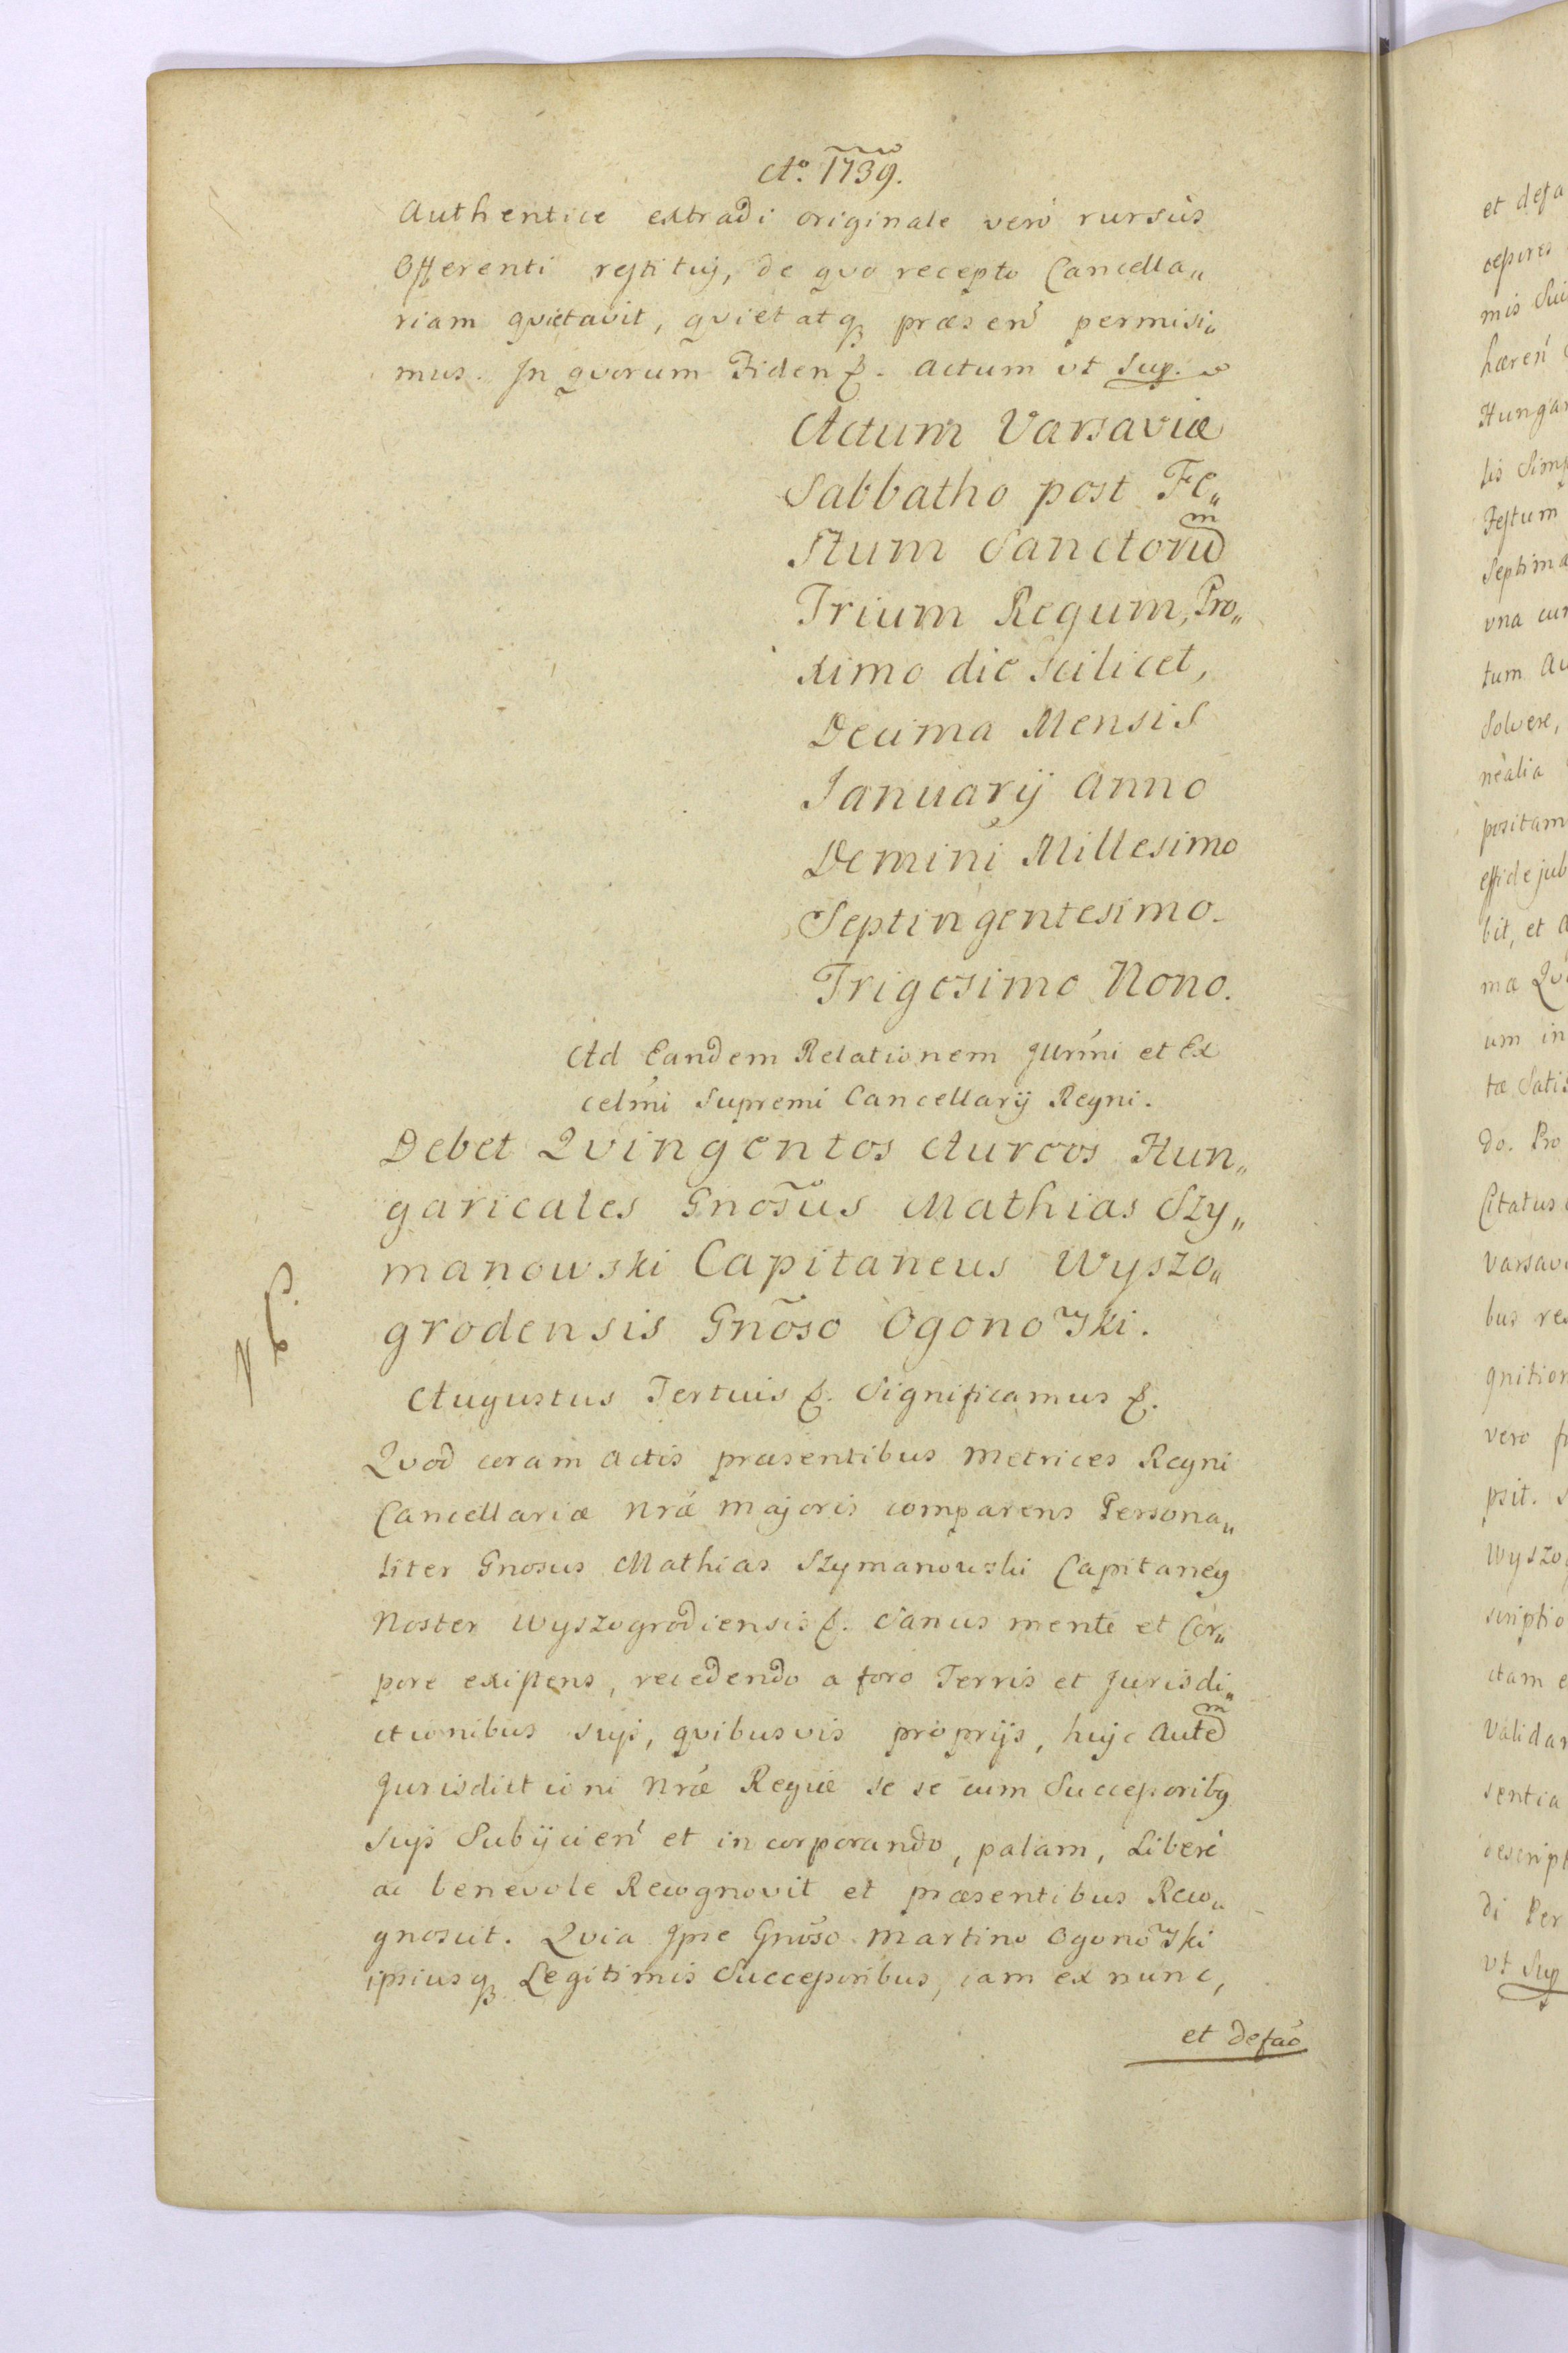 Ao. 1739.
Authentice extradi originale verò rursùs
Offerenti restituj, de quo recepto Cancella„
riam quietavit, quietatq; præsen permisi„
mus. In quorum Fidem &. Actum vt Sup.
Actum Varsaviæ
Sabbatho post Fe„
stum Sanctorum
Trium Regum, Pro„
ximo die scilicet,
Decima Mensis
Januarij Anno
Domini Millesimo
Septingentesimo
Trigesimo Nono.
Ad Eandem Relationem Jllrmi et Ex
celmi Supremi Cancellarij Regni.
Debet Qvingentos Aureos Hun„
garicales Gnosus Mathias Szy„
manowski Capitaneus Wyszo„
grodensis Gnoso Ogonowski.
Augustus Tertius &. Significamus &.
Qvod coram Actis præsentibus Metrices Regni
Cancellariæ Nræ Majoris comparens Persona„
liter Gnosus Mathias Szymanowski Capitaneq
Noster Wyszogrodiensis &. Sanus mente et Cor„
pore existens, recedendo a foro Terris et Jurisdi„
ctionibus suis, qvibusvis proprijs, huic autem
Jurisdictioni Nræ Regiæ se se cum Successoribq
suis Subijcien et incorporando, palam, Liberè
ac benevole Recognovit et præsentibus Reco„
gnoscit. Qvia Jpse Gnoso Martino Ogonowski
ipsiusq; Legitimis Successoribus, iam ex nunc,
et defaō
NB.
et defa
cessores
mis Sui
hæren
Hungar
lis Simp
Festum
Septima
vna cum
tum Au
Solvere,
nealia
positam
bit, et a
ma Qv
um in
tæ Satis
do. Pro
Citatus
Varsavi
bus re
gnition
vero
psit.
Wyszo
scriptio
ctam e
Validam
sentia
descript
di Per
vt Sup